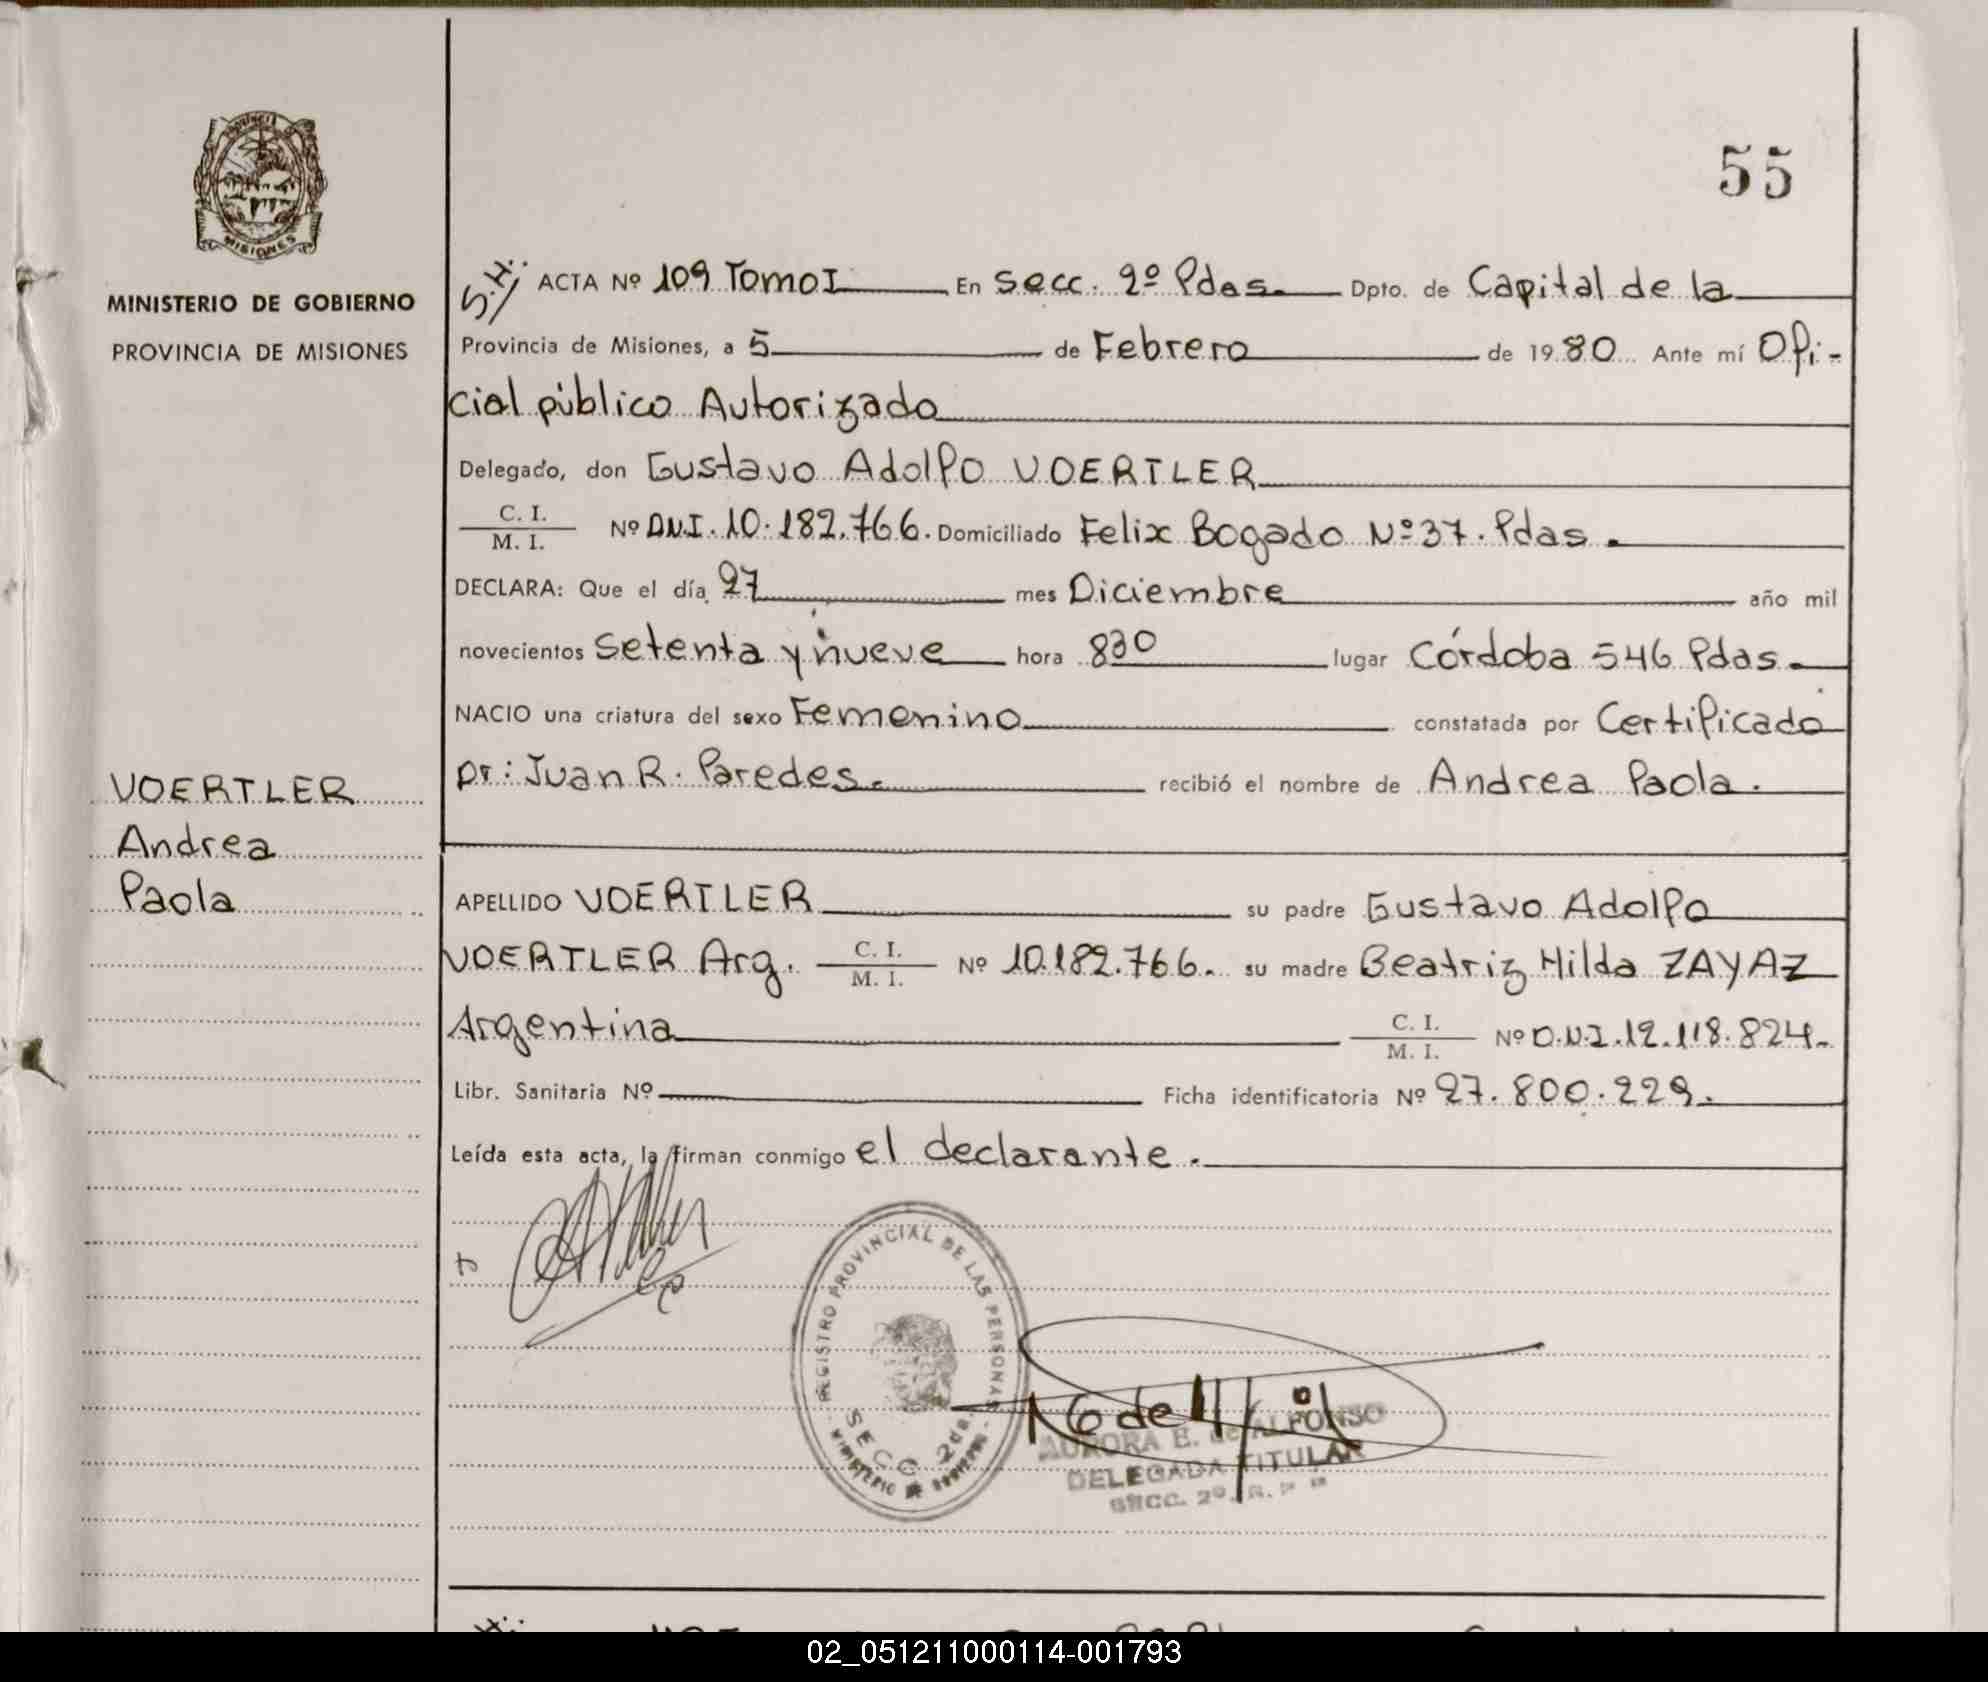 55
PROVINCIA
MISIONES
MINISTERIO DE GOBIERNO
PROVINCIA DE MISIONES
S.H/ ACTA Nº 109 Tomo I En Secc. 2º Pdas. Dpto. de Capital de la
Provincia de Misiones, a 5 de Febrero de 1980 Ante mí Ofi-
cial público Autorizado
Delegado, don Gustavo Adolfo VOERTLER
C. I.
M. I. Nº D.N.I. 10.182.766. Domiciliado Felix Bogado Nº 37. Pdas.
DECLARA: Que el día 27 mes Diciembre año mil
novecientos Setenta y nueve hora 830 lugar Córdoba 546 Pdas.
NACIO una criatura del sexo Femenino constatada por Certificado
Dr: Juan R. Paredes. recibió el nombre de Andrea Paola.
VOERTLER
Andrea
Paola
APELLIDO VOERTLER su padre Gustavo Adolfo
VOERTLER Arg. C. I.
M. I. Nº 10.182.766. su madre Beatriz Hilda ZAYAZ
Argentina C. I.
M. I. Nº D.N.I. 12.118.824.
Libr. Sanitaria Nº Ficha identificatoria Nº 27.800.229.
Leída esta acta, la firman conmigo el declarante.
REGISTRO PROVINCIAL DE LAS PERSONAS
SECC 2da.
MINISTERIO DE GOBIERNO
AURORA E. de ALFONSO
DELEGADA TITULAR
SECC. 2º. R. P. P.
02_051211000114-001793